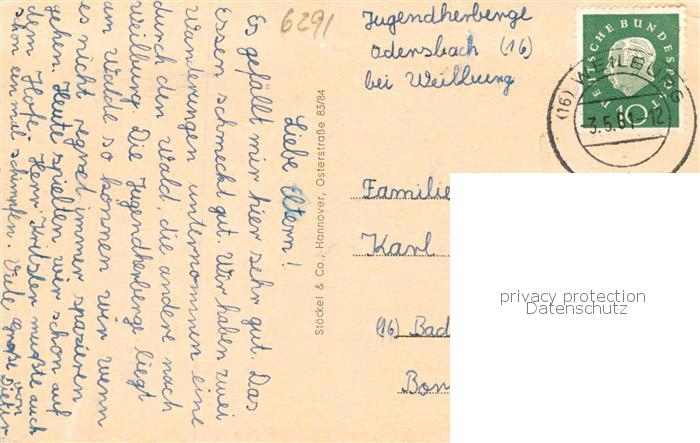 6291
Liebe Eltern!
Es gefällt mir hier sehr gut. Das
Essen schmeckt gut. Wir haben zwei
Wanderungen unternommen eine
durch den Wald, die andere nach
Weilburg. Die Jugendherberge liegt
am Walde so können wir wenn
es nicht regnet immer spazieren
gehen. Heute spielten wir schon auf
dem Hofe. Herr Kretzler mußte auch
schon ein mal schimpfen. Viele Grüße von
Dieter
Stöckel & Co., Hannover, Osterstraße 83/84
Jugendherberge
Odersbach (16)
bei Weilburg
DEUTSCHE BUNDESPOST
10
(16) WEILBURG
3.5.61-12
Familie
Karl
(16) Bad
Bon
privacy protection
Datenschutz